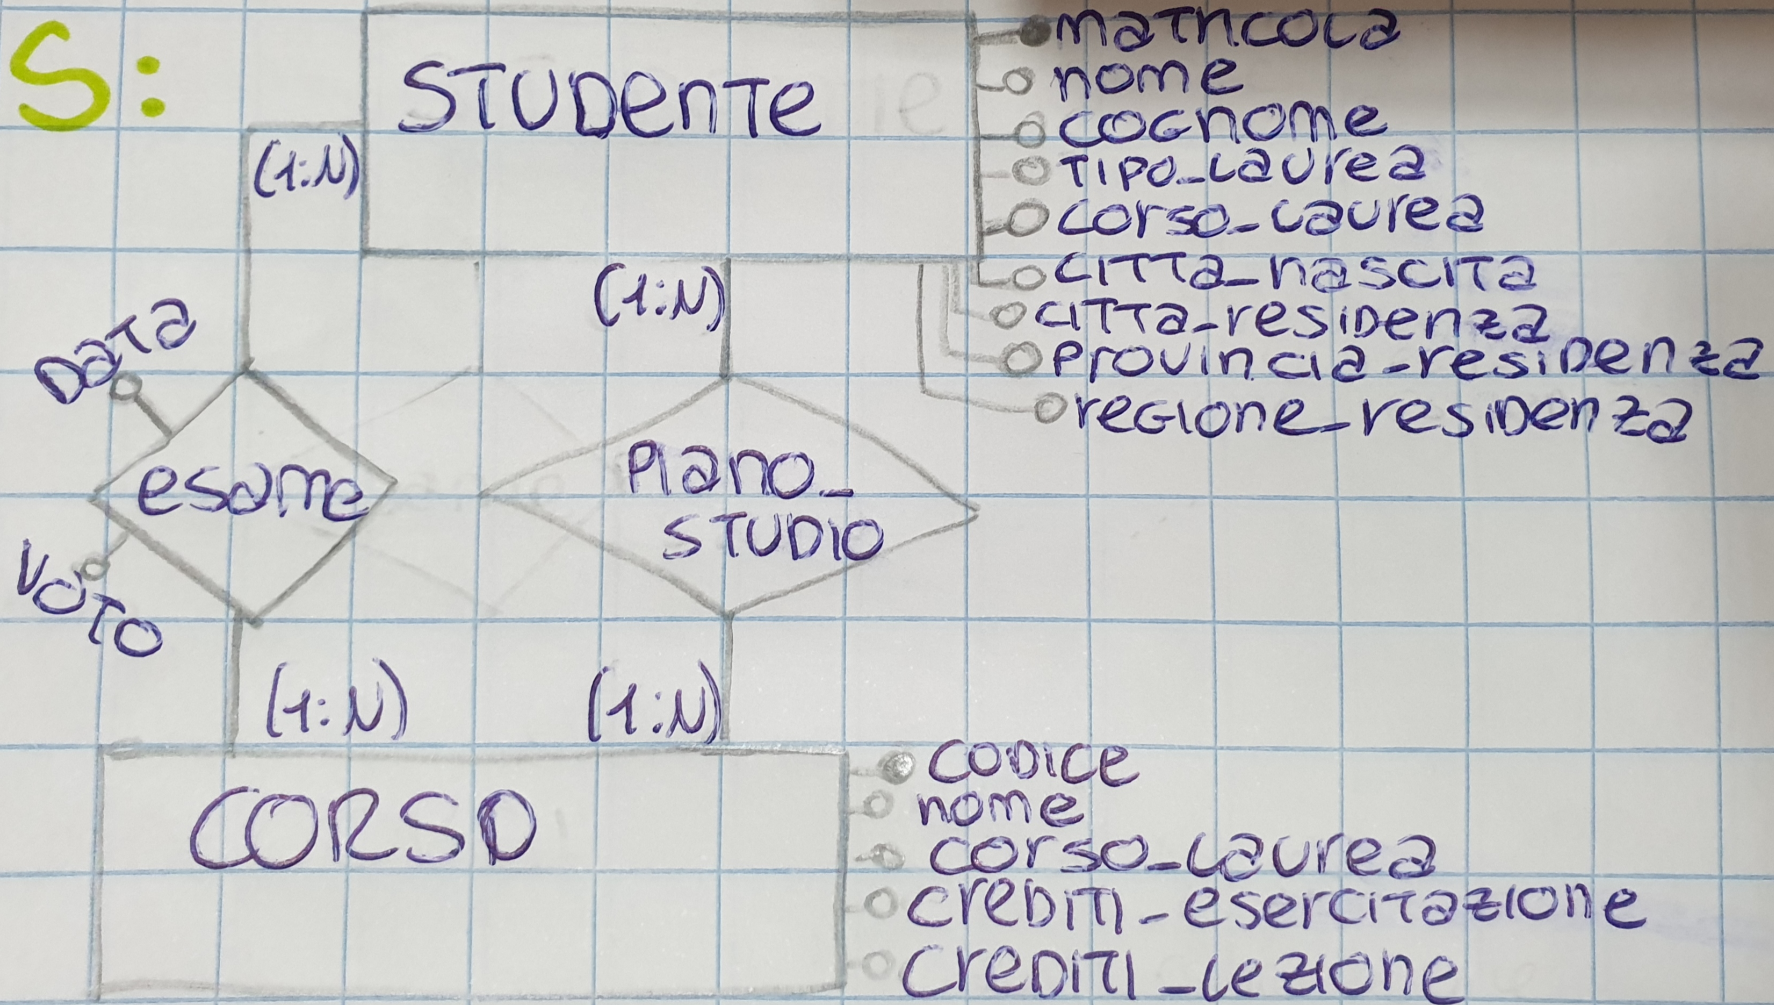 S:
STUDENTE
matricola
nome
cognome
TIPO_Laurea
corso_Laurea
citta_nascita
citta_residenza
Provincia_residenza
regione_residenza
(1:N)
(1:N)
Data
esame
Voto
Piano_
STUDIO
(1:N)
(1:N)
CORSO
CODICE
nome
corso_Laurea
crediti_esercitazione
crediti_lezione